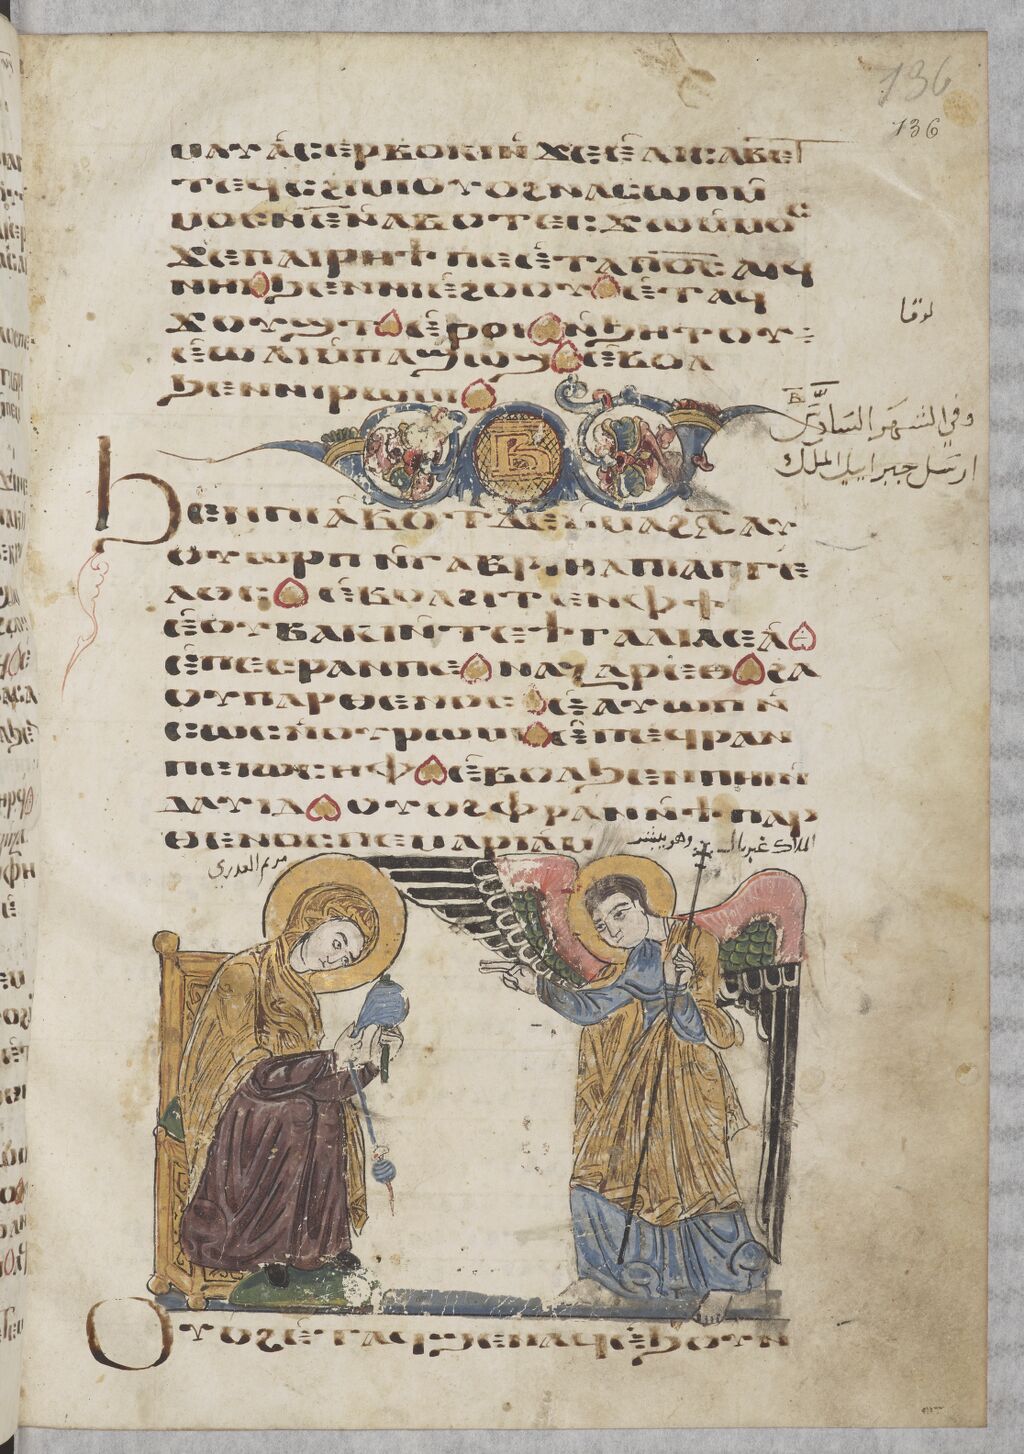 ⲁⲥⲉⲣⲃⲟⲕⲓⲛ̇ϫⲉⲉ̇ⲗⲓⲥⲁⲃⲉⲧ
ⲧⲉϥⲥϩⲓⲙⲓⲟⲩⲟϩⲛⲁⲥϩⲱⲡⲙ̇
ⲙⲟⲥⲛ̇ⲉ̅ⲛ̇ⲁⲃⲟⲧⲉⲥϫⲱⲙ̇ⲙⲟⲥ
ϫⲉⲡⲁⲓⲣⲏϯⲡⲉⲉ̇ⲧⲁⲡϭ̅ⲥ̅ⲁⲓϥ
ⲛⲏⲓϧⲉⲛⲛⲓⲉϩⲟⲟⲩⲉ̇ⲧⲁϥ
ϫⲟⲩϣⲧⲉ̇ⲣⲟⲓⲛ̇ϧⲏⲧⲟⲩ
ⲉ̇ⲱⲗⲓⲙ̇ⲡⲁϣⲱϣⲉ̇ⲃⲟⲗ
ϧⲉⲛⲛⲓⲣⲱⲙⲓ
لوقا
ⲃ̅
وفي الشهر السادس
ارسل جبراييل الملاك
ⲃ̅
ϧⲉⲛⲡⲓⲁ̇ⲃⲟⲧⲇⲉⲙ̇ⲙⲁϩⲋ̅ⲁⲩ
ⲟⲩⲱⲣⲡⲛ̇ⲅⲁⲃⲣⲓⲏⲗⲡⲓⲁⲅⲅⲉ
ⲗⲟⲥⲉ̇ⲃⲟⲗϩⲓⲧⲉⲛⲫϯ
ⲉ̇ⲟⲩⲃⲁⲕⲓⲛ̇ⲧⲉϯⲅⲁⲗⲓⲗⲉⲁ̇
ⲉ̇ⲡⲉⲥⲣⲁⲛⲡⲉⲛⲁⲍⲁⲣⲉⲑϩⲁ
ⲟⲩⲡⲁⲣⲑⲉⲛⲟⲥⲉ̇ⲁⲩⲱⲡⲛ̇
ⲥⲱⲥⲛ̇ⲟⲩⲣⲱⲙⲓⲉ̇ⲡⲉϥⲣⲁⲛ
ⲡⲉⲓⲱⲥⲏⲫⲉ̇ⲃⲟⲗϧⲉⲛⲡⲏⲓⲛ̇
ⲇⲁⲩⲓⲇⲟⲩⲟϩⲫⲣⲁⲛⲛ̇ϯⲡⲁⲣ
ⲑⲉⲛⲟⲥⲡⲉⲙⲁⲣⲓⲁⲙ
الملاك غبريال وهو يبشر
مريم العدري
ⲟⲩⲟϩⲉ̇ⲧⲁϥϣⲉⲛⲁϥⲉ̇ϧⲟⲩⲛ
136
136